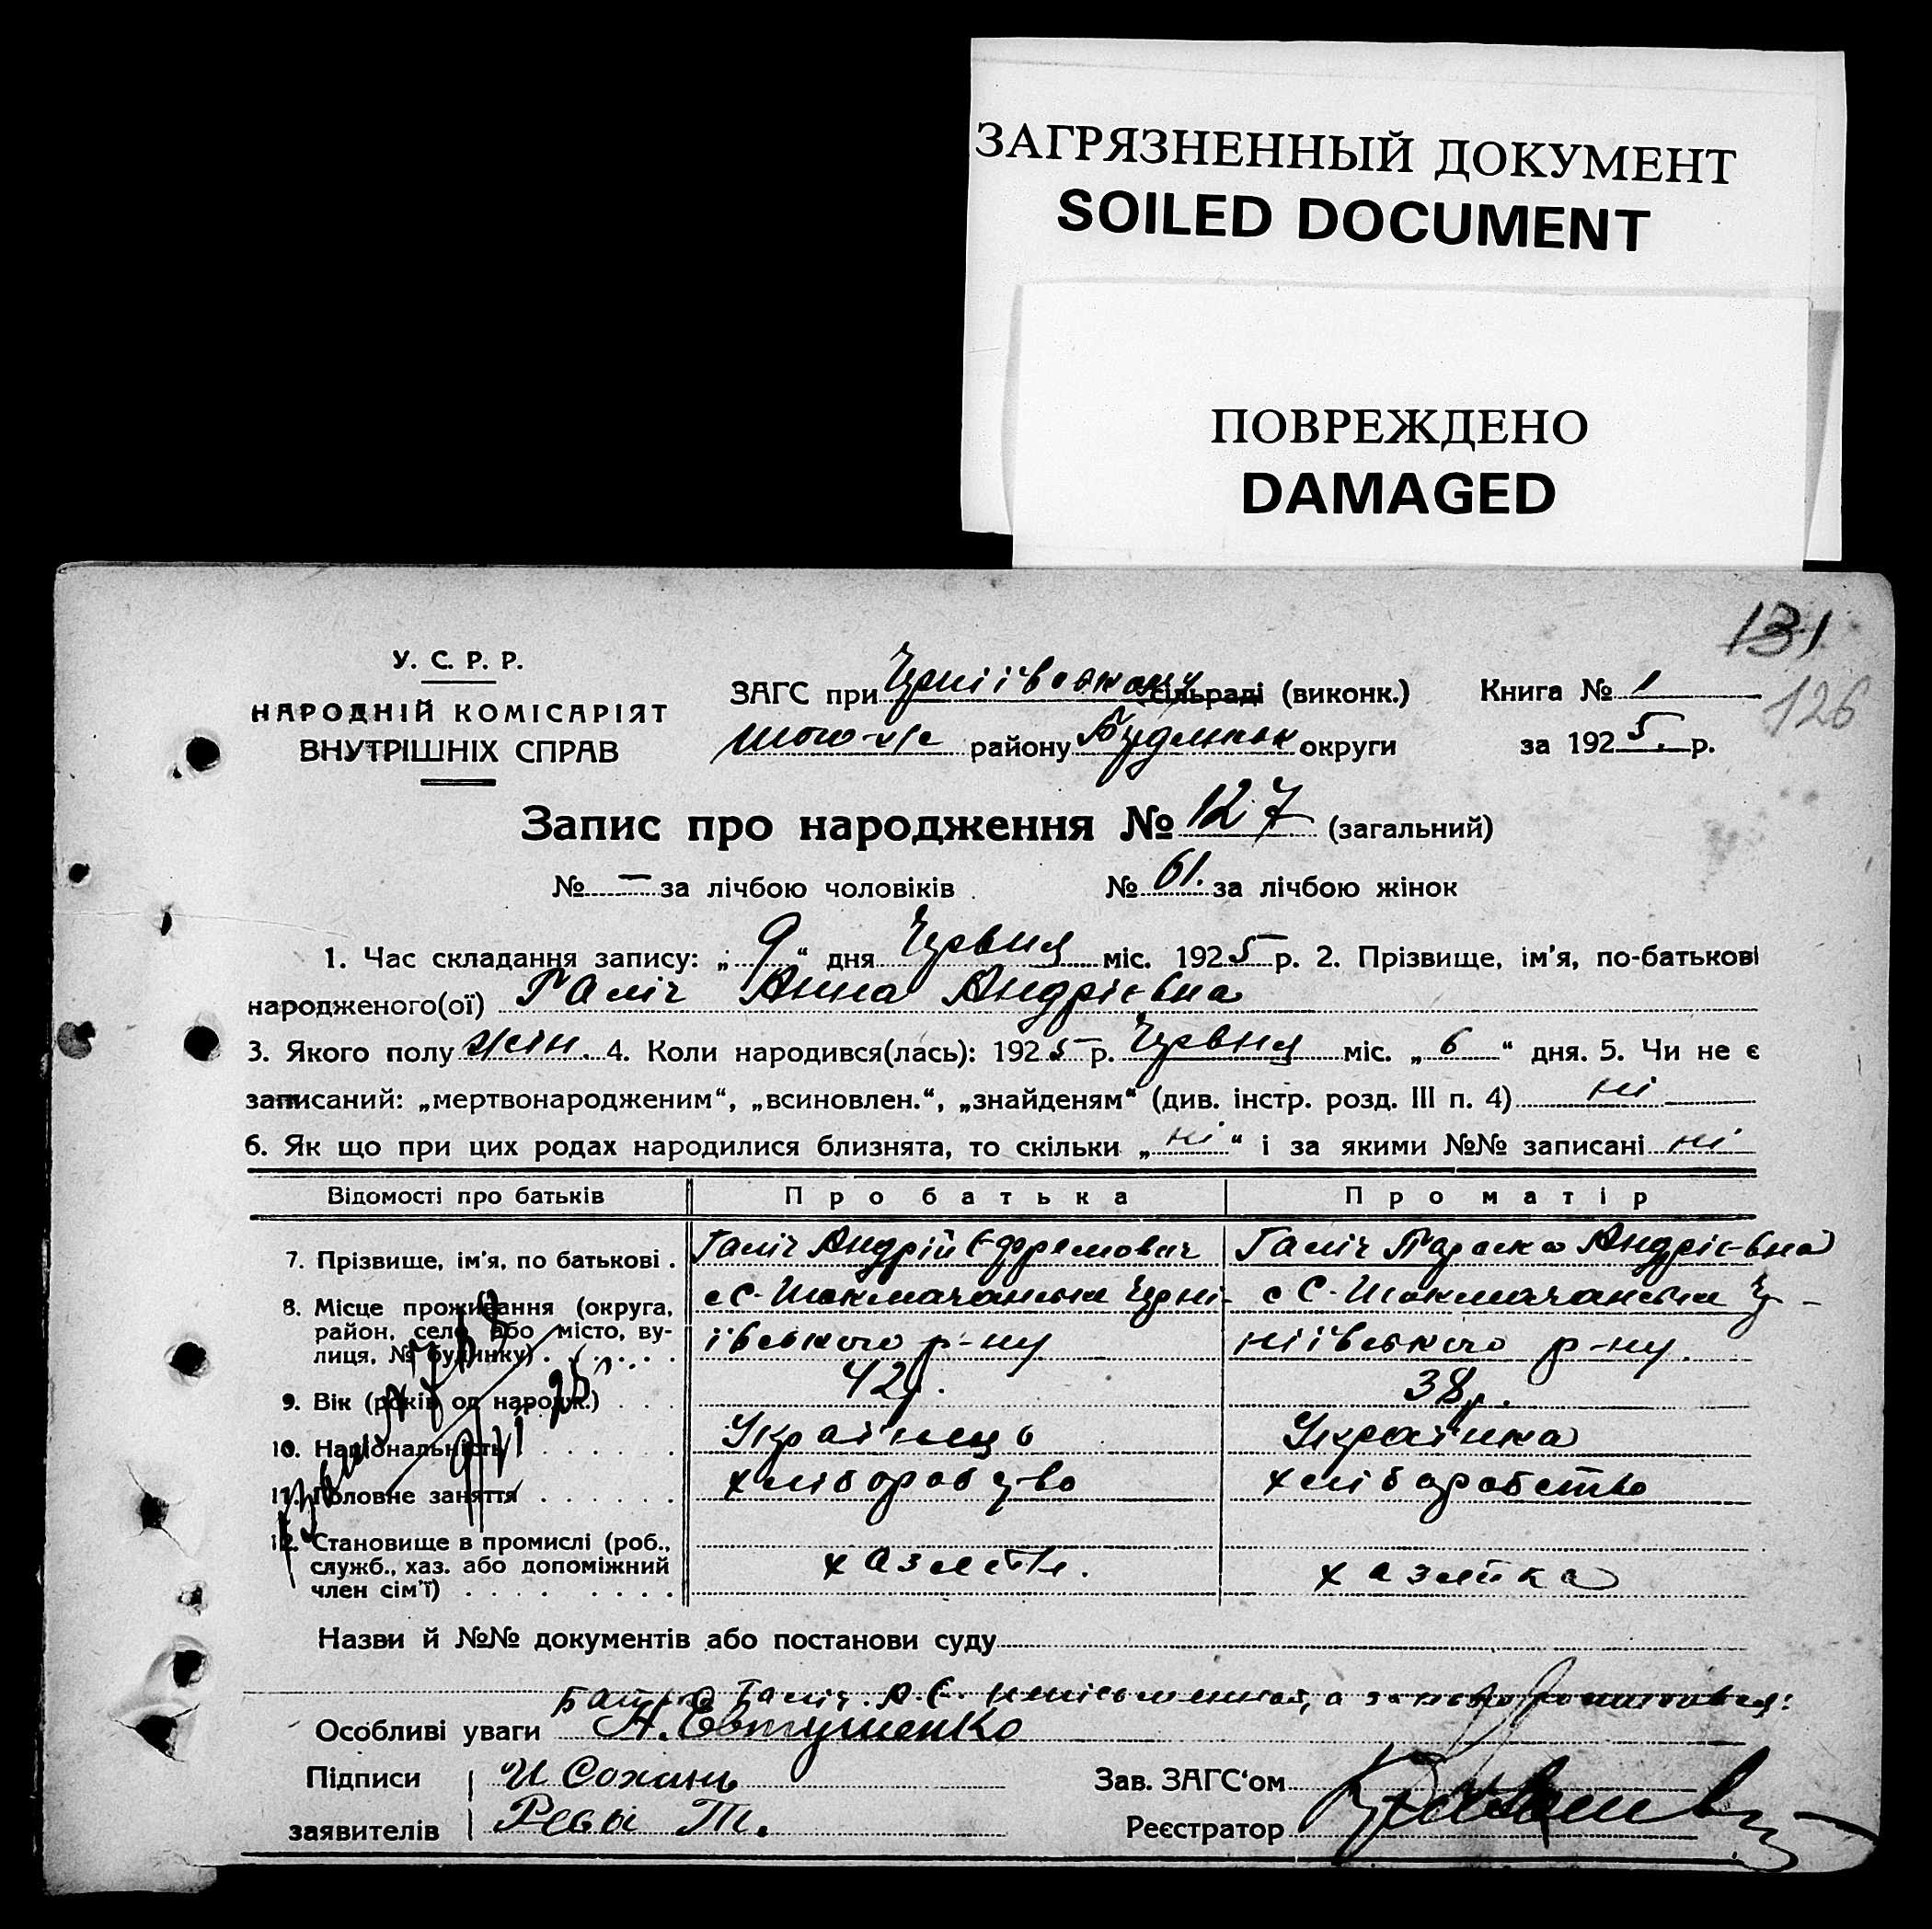 ЗАГРЯЗНЕННЫЙ ДОКУМЕНТ
SOILED DOCUMENT
ПОВРЕЖДЕНО
DAMAGED
131
126
У. С. Р. Р.
НАРОДНІЙ КОМІСАРІЯТ
ВНУТРІШНІХ СПРАВ
ЗАГС при сільраді (виконк.) Книга № 1
того-ж району округи за 1925 р.
Запис про народження № 127 (загальний)
№ — за лічбою чоловіків № 61. за лічбою жінок
1. Час складання запису: „9“ дня Червня міс. 1925 р. 2. Прізвище, ім'я, по-батькові
народженого(ої) Галіч Анна Андрієвна
3. Якого полу жін. 4. Коли народився(лась): 1925 р. Червня міс. „6“ дня. 5. Чи не є
записаний: „мертвонародженим“, „всиновлен.“, „знайденям“ (див. інстр. розд. III п. 4) ні
6. Як що при цих родах народилися близнята, то скільки „ні“ і за якими №№ записані ні
Відомості про батьків Про батька Про матір
7. Прізвище, ім'я, по батькові . Галіч Андрій Єфремович Галіч Параска Андрієвна
8. Місце проживання (округа, район, село або місто, вулиця, № будинку)
івського р-ну ніївського р-ну
9. Вік (років од народж.) . . . 42 р. 38 р.
10. Національність . . . . . . Українець Українка
11. Головне заняття . . . . . хліборобство хліборобство
12. Становище в промислі (роб.,
служб., хаз. або допоміжний
член сім'ї) . . . . . . . . хазяїн. хазяйка
Назви й №№ документів або постанови суду
Батько Галіч А. Є.
Особливі уваги Н. Евтушенко
Підписи И Сохань Зав. ЗАГС‘ом
заявителів Рева Т. Реєстратор